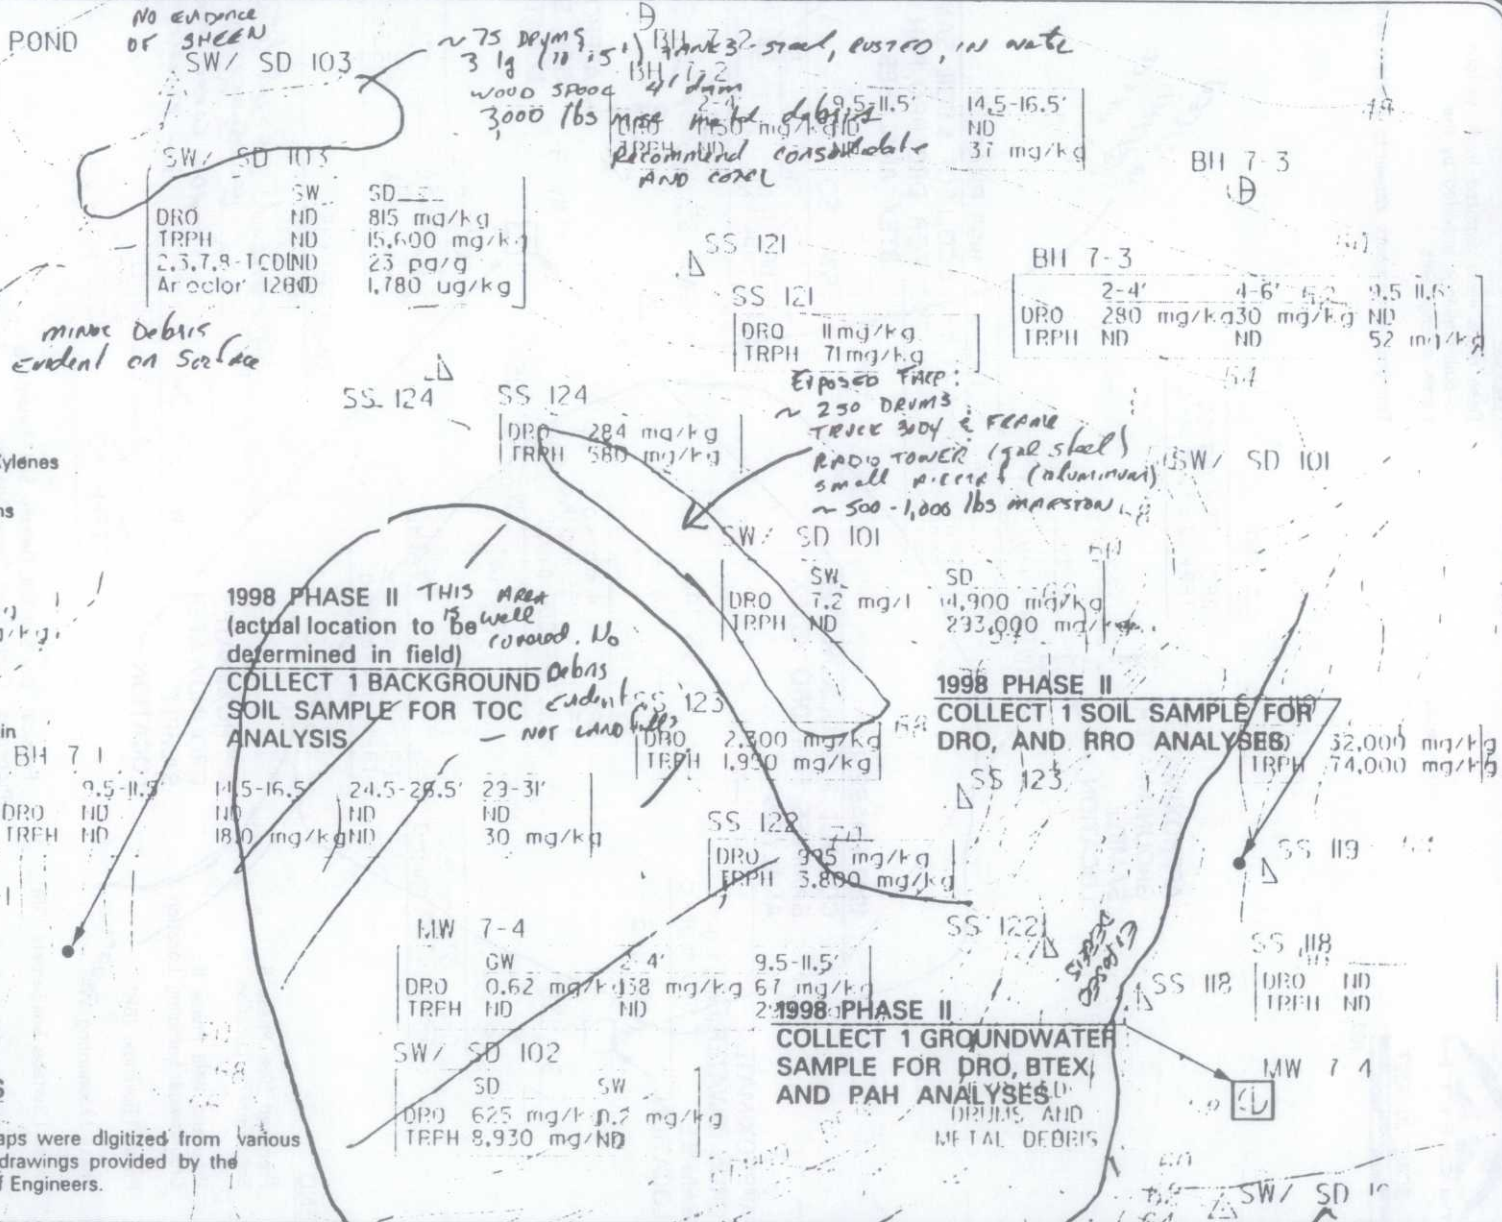 POND
NO EVIDENCE
OF SHEEN
SW/ SD 103
~ 75 DRUMS
TANKS - steel, RUSTED, IN water
WOOD SPOOL 4' diam
3000 lbs misc metal debris
Recommend consolidate
AND
BH 7-2
BH 7-2
2-4' 9.5-11.5' 14.5-16.5'
DRO mg/kg ND ND
TRPH ND ND 37 mg/kg
BH 7-3
SW/ SD 103
SW SD
DRO ND 815 mg/kg
TRPH ND 15,600 mg/kg
2,3,7,8-TCD ND 23 pg/g
Aroclor 1260 ND 1,780 ug/kg
minor Debris
Evident on Surface
SS 121
SS 121
DRO 11 mg/kg
TRPH 71 mg/kg
BH 7-3
2-4' 4-6' 9.5 11.5'
DRO 280 mg/kg 30 mg/kg ND
TRPH ND ND 52 mg/kg
64
SS 124
SS 124
DRO 284 mg/kg
TRPH 580 mg/kg
EXPOSED FACE:
~ 250 DRUMS
TRUCK BODY & FRAME
RADIO TOWER (gal steel)
small (aluminum)
~ 500-1,000 lbs MARSTON
SW/ SD 101
68
SW/ SD 101
SW SD
DRO 7.2 mg/l 14,900 mg/kg
TRPH ND 293,000 mg/kg
Xylenes
1998 PHASE II
(actual location to be
determined in field)
COLLECT 1 BACKGROUND
SOIL SAMPLE FOR TOC
ANALYSIS
THIS AREA
is well
covered. No
Debris
Evident
— NOT LAND fill?
SS 123
DRO 2,300 mg/kg
TRPH 1,950 mg/kg
68
1998 PHASE II
COLLECT 1 SOIL SAMPLE FOR
DRO, AND RRO ANALYSES
119
DRO 32,000 mg/kg
TRPH 74,000 mg/kg
SS 123
in
BH 7 1
9.5-11.5' 14.5-16.5' 24.5-26.5' 29-31'
DRO ND ND ND ND
TRPH ND mg/kg ND 30 mg/kg
SS 122
70
DRO 995 mg/kg
TRPH 3,800 mg/kg
SS 119
SS 122
EXPOSED
DEBRIS
MW 7-4
GW 2-4' 9.5-11.5'
DRO 0.62 mg/ 138 mg/kg 67 mg/kg
TRPH ND ND
SS 118
SS 118
DRO ND
TRPH ND
1998 PHASE II
COLLECT 1 GROUNDWATER
SAMPLE FOR DRO, BTEX,
AND PAH ANALYSES
DRUMS AND
METAL DEBRIS
MW 7 4
SW/ SD 102
SD SW
DRO 625 mg/k 0.2 mg/kg
TRPH 8,930 mg/ ND
68
S
aps were digitized from various
drawings provided by the
f Engineers.
60
SW/ SD